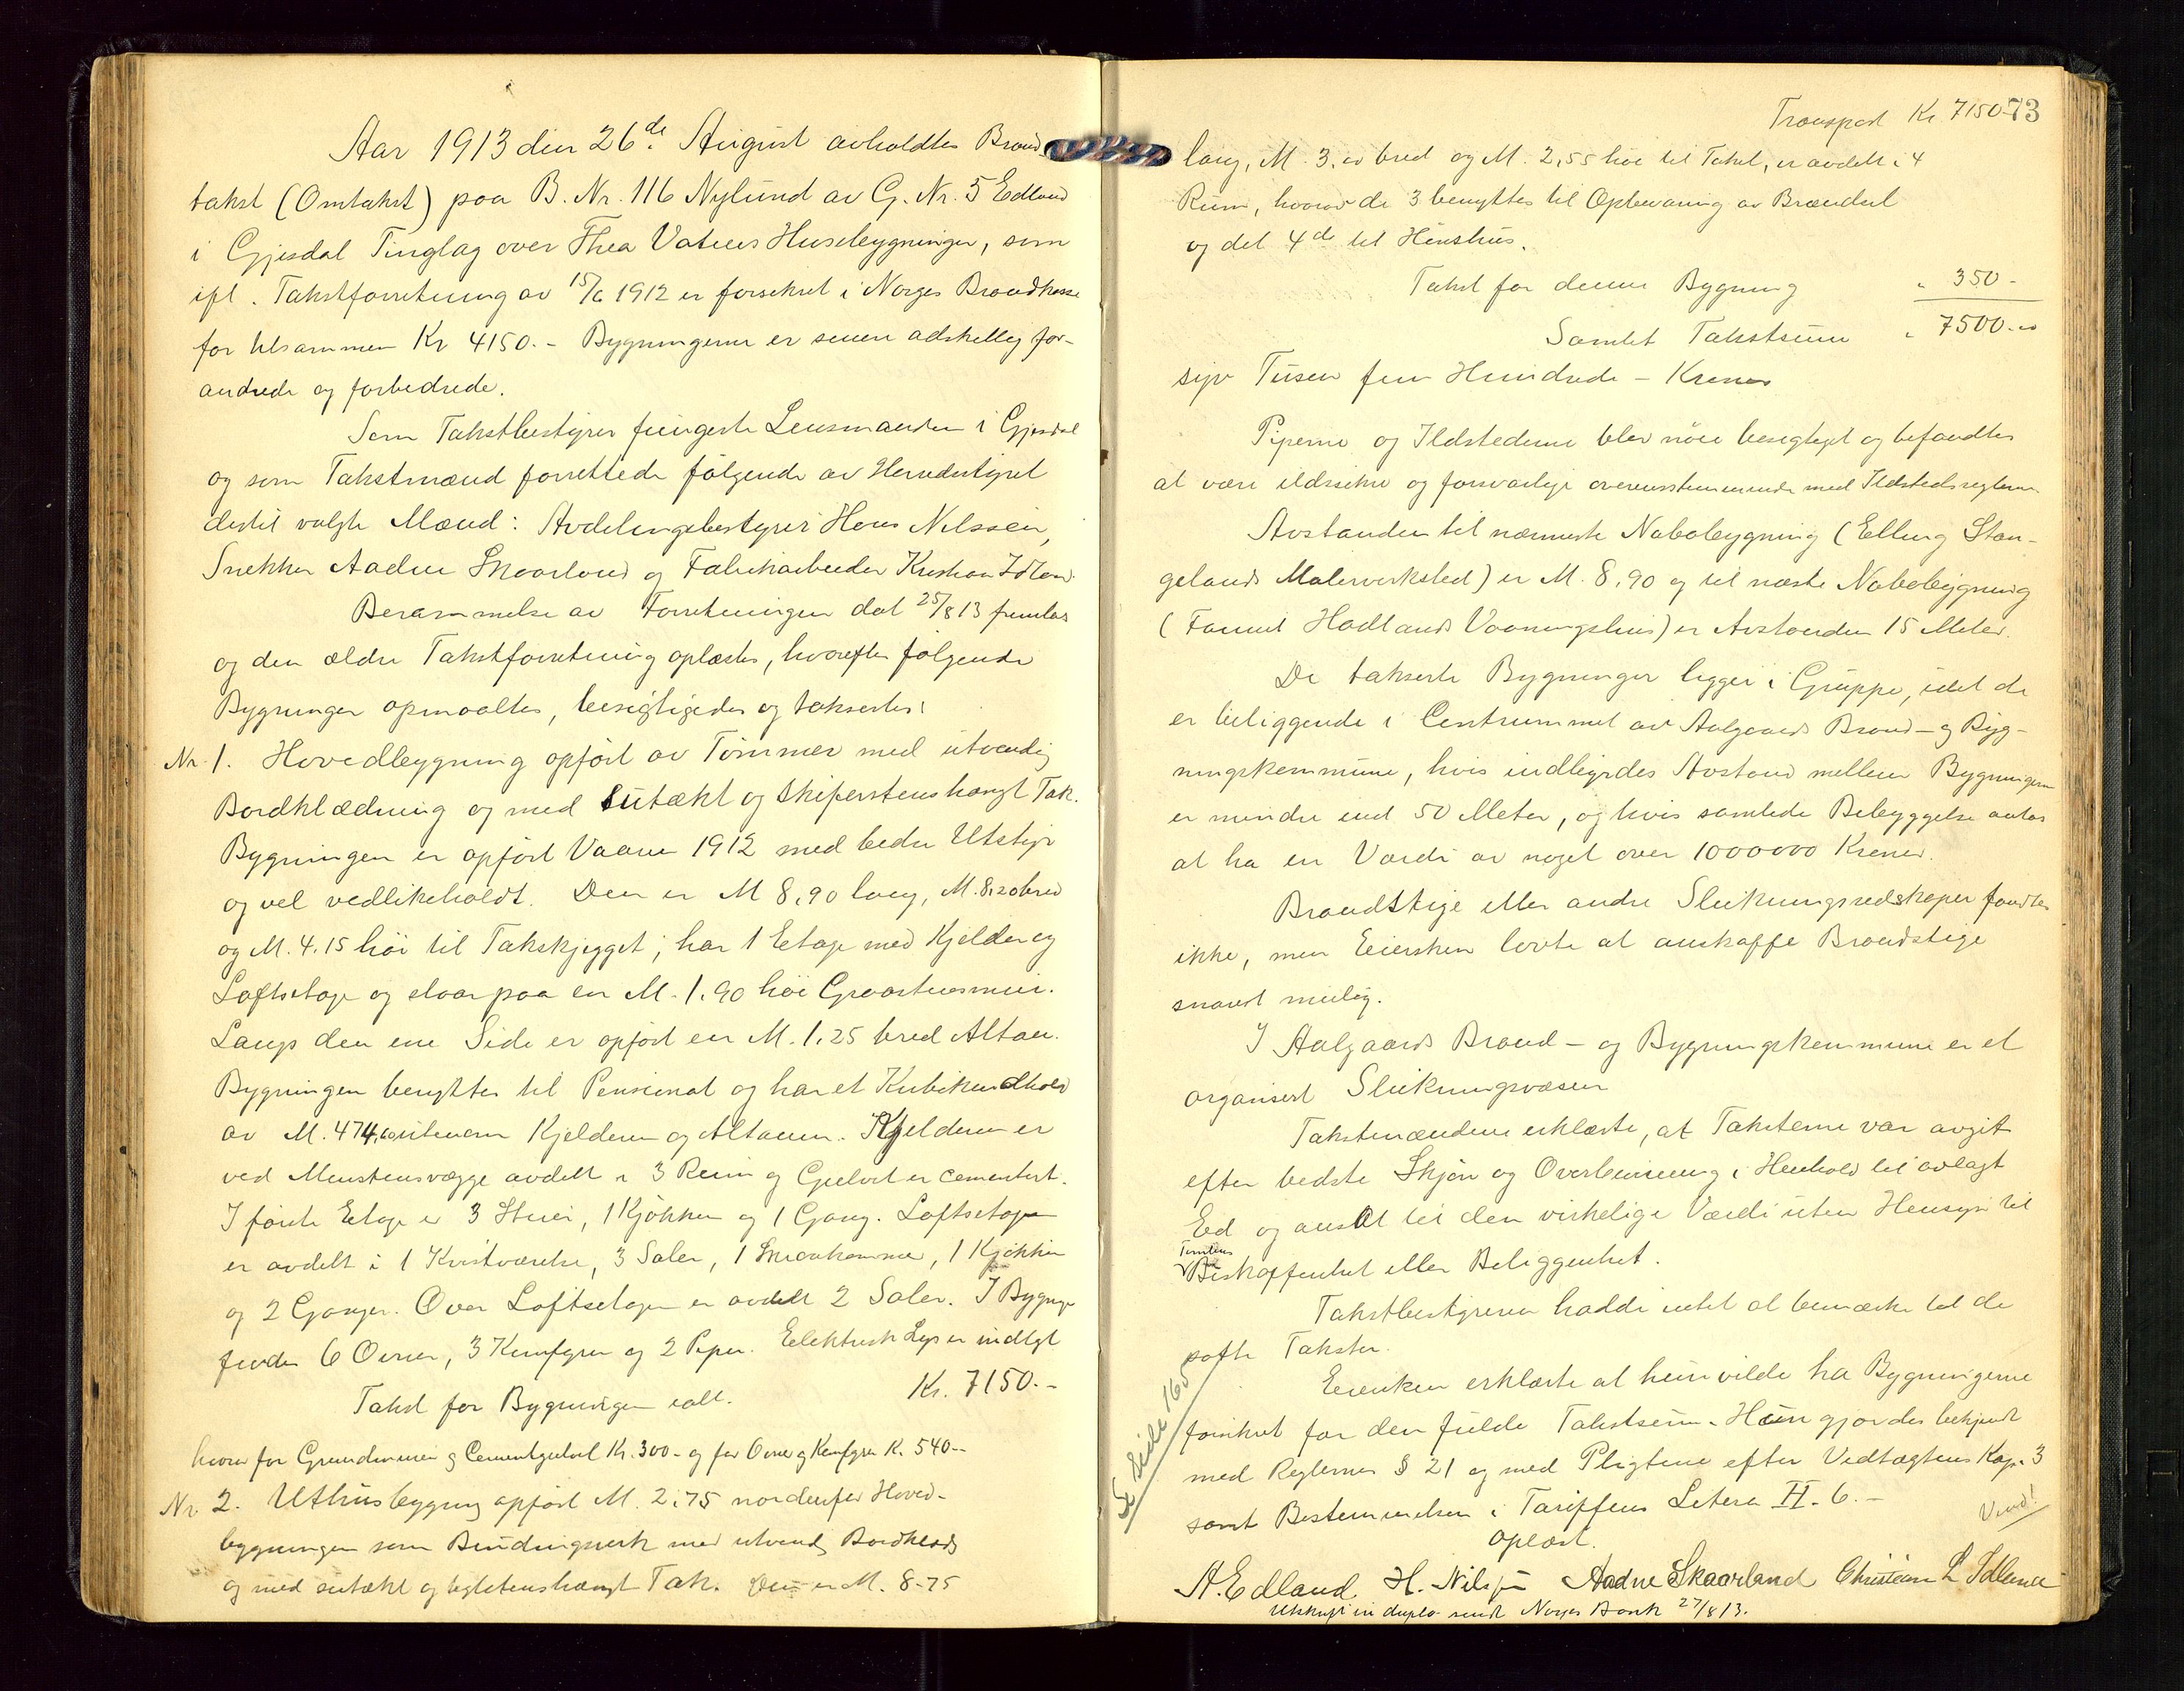 Aar 1913 den 26de August avholdtes Brand-
takst (Omtakst) paa B. Nr. 116 Nylund av G. Nr. 5 Edland
i Gjesdal Tinglag over Thea Vatnes Husebygninger, som
ifl. Takstforretning av 15/6 1912 er forsikret i Norges Brandkasse
for tilsammen Kr 4150.- Bygningerne er senere adskillig for-
andrede og forbedrede.
Som Takstbestyrer fungerte Lensmanden i Gjesdal
og som Takstmænd forrettede følgende av Herredsstyret
dertil valgte Mænd: Avdelingsbestyrer Hans Nilssen,
Snekker Aadne Skaarland og Fabrikarbeider Kristian Idland.
Berammelse av Forretningen dat 25/8 13 fremlas
og den ældre Takstforretning oplæstes, hvorefter følgende
Bygninger opmaaltes, besigtigedes og taksertes:
Nr. 1. Hovedbygning opført av Tømmer med utvendig
Bordklædning og med sutækt og skiferstenshangt Tak.
Bygningen er opført Vaaren 1912 med bedre Utstyr
og vel vedlikeholdt. Den er M 8,90 lang, M. 8,20 bred
og M. 4.15 høi til Takskjegget, har 1 Etage med Kjelder og
Loftsetage og staar paa en M. 1.90 høi Graastensmur.
Langs den ene Side er opført en M. 1,25 bred Altan.
Bygningen benyttes til Pensionat og har et Kubikindhold
av M. 474, utenom Kjelderen og Altanen. Kjelderen er
ved Murstensvægge avdelt i 3 Rum og Gulvet er cementert.
I første Etage er 3 Stuer, 1 Kjøkken og 1 Gang. Loftsetagen
er avdelt i 1 Kvistværelse, 3 Saler, 1 kammer, 1 Kjøkken
og 2 Ganger. Over Loftsetagen er avdelt 2 Saler. I Bygngn
findes 6 Ovner, 3 Komfyrer og 2 Piper. Elektrisk Lys er indlagt
Takst for Bygningen ialt. Kr. 7150.-
hvorav for Grundmuren og Cementgulvet Kr. 300.- og for Ovne og Komfyrer K. 540.-
Nr 2. Uthusbygning opført M. 2,75 nordenfor Hoved-
bygningen som Bindingverk med utvendig Bordklædn
og med sutækt og teglstenshængt Tak. Den er M. 8.75
Transport Kr 7150- 73
lang, M. 3.00 bred og M. 2,55 høi til Taket, er avdelt i 4
Rum, hvorav de 3 benyttes til Opbevaring av Brændsel
og det 4de til Hønshus.
Takst for denne Bygning " 350-
Samlet Takstsum " 7500.00
syv Tusen fem Hundrede - Kroner
Piperne og Ildstederne blev nøie besigtiget og befandtes
at være ildssikre og forsvarlige overensstemmende med Ildstedsreglerne
Avstanden til nærmeste Nabobygning (Elling Stan-
gelands Malerverksted) er M. 8,90 og til næste Nabobygning
( Hadlands Vaaningshus) er Avstanden 15 Meter.
De takserte Bygninger ligger i Gruppe, idet de
er beliggende i Centrummet av Aalgaards Brand- og Byg-
ningskommune, hvis indbyrdes Avstand mellem Bygningerne
er mindre end 50 Meter, og hvis samlede Bebyggelse antas
at ha en Værdi av noget over 1000000 Kroner.
Brandstige eller andre Slukningsredskaper fandtes
ikke, men Eiersken lovte at anskaffe Brandstige
snarest mulig.
I Aalgaards Brand- og Bygningskommune er et
organisert Slukningsvæsen
Takstmændene erklærte, at Taksterne var avgit
efter bedste Skjøn og Overbevisning i Henhold til avlagt
Ed og ansat til den virkelige Værdi uten Hensyn til
Tomtens
Beskaffenhet eller Beliggenhet.
Takstbestyreren hadde intet at bemerke til de
satte Takster.
Eiersken erklærte at hun vilde ha Bygningerne
forsikret for den fulde Takstsum. Hun gjordes bekjendt
med Reglernes § 21 og med Pligtene efter Vedtægtens Kap. 3
samt Bestemmelsen i Tariffens Litera II. 6.-
Vend!
Oplæst.
Se Side 165
A. Edland. H. Nilssen Aadne Skaarland Christian L Idland
Utskrift in duplo sendt Norges Bank 27/8 13.